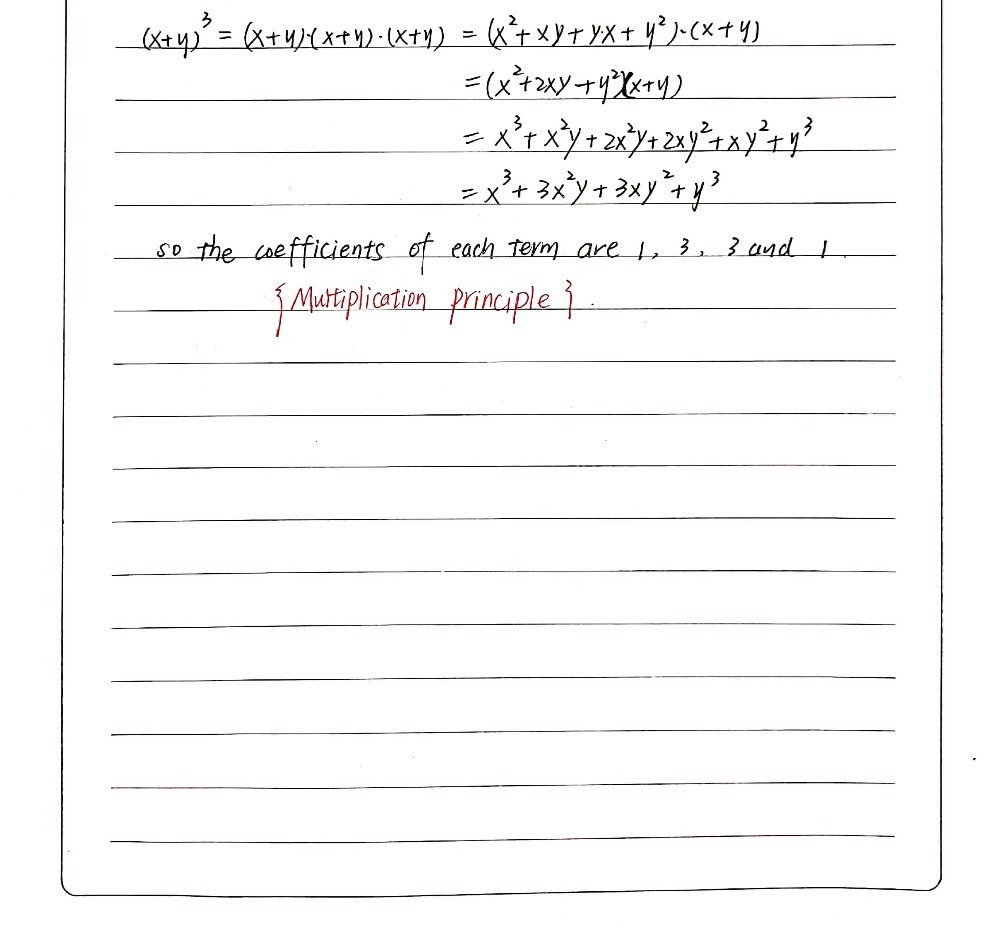 (x+y)³ = (x+y)·(x+y)·(x+y) = (x²+xy+y·x+y²)·(x+y)
=(x²+2xy+y²)(x+y)
= x³+x²y+2x²y+2xy²+xy²+y³
= x³+3x²y+3xy²+y³
so the coefficients of each term are 1, 3, 3 and 1.
{Multiplication principle}.